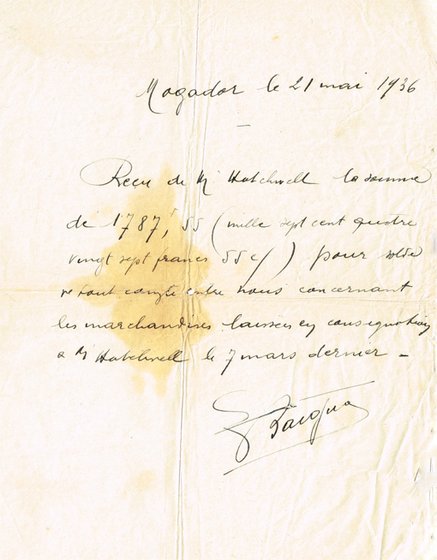 Mogador le 21 mai 1936
Reçu de Mr Hatchwell la somme
de 1787f,55 (mille sept cent quatre
vingt sept francs 55 c/) pour solde
de tout compte entre nous concernant
les marchandises laissées en consignation
a Mr Hatchwell le 7 mars dernier -